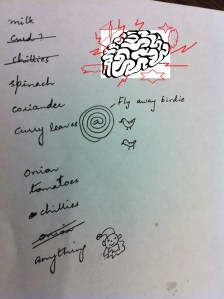 milk
curd 1
chillies
spinach
coriander
curry leaves
Fly away birdie
onion
tomatoes
chillies
onion
anything